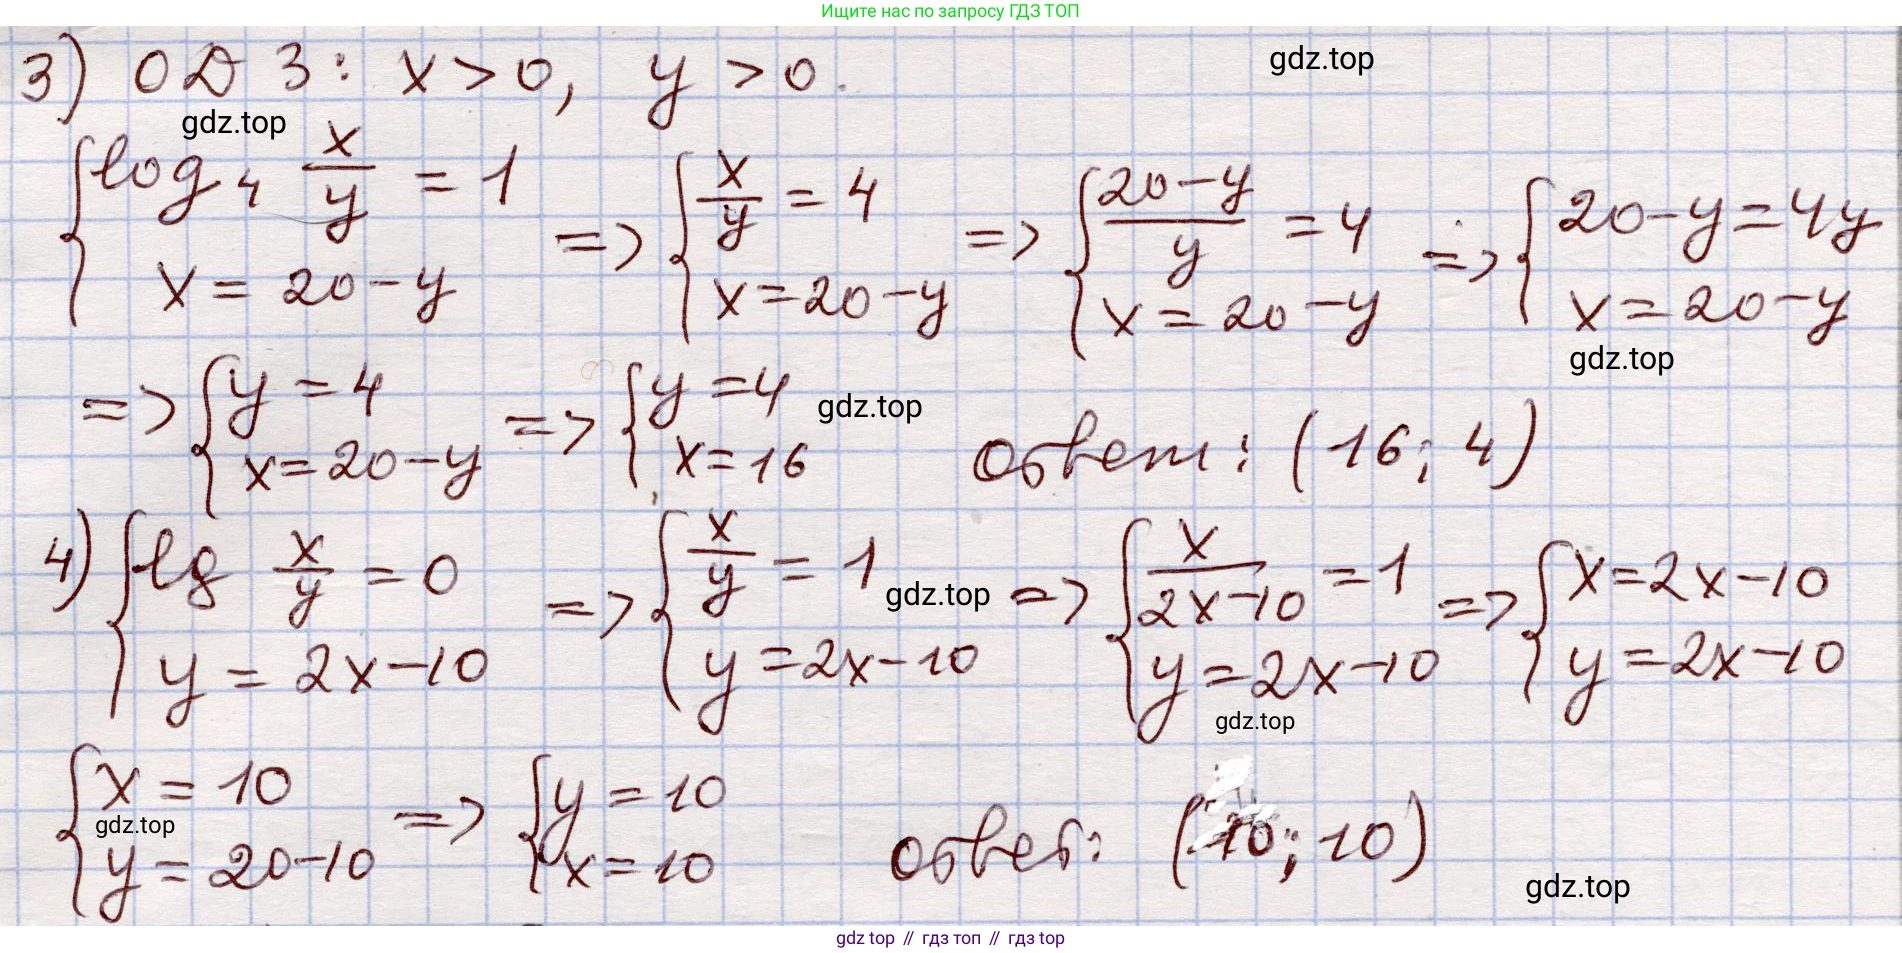 Ищите нас по запросу ГДЗ ТОП
3) ОДЗ: x > 0, y > 0.
gdz.top
gdz.top
{ log₄ x/y = 1 => { x/y = 4 => { (20-y)/y = 4 => { 20-y=4y
x = 20-y x=20-y x=20-y x=20-y
gdz.top
=> { y = 4 => { y = 4
gdz.top
x=20-y x=16 ответ: (16; 4)
4) { lg x/y = 0 => { x/y = 1 => { x/(2x-10) = 1 => { x=2x-10
gdz.top
y = 2x-10 y=2x-10 y=2x-10 y=2x-10
gdz.top
{ x = 10 => { y = 10
gdz.top
y = 20-10 x=10 ответ: (10; 10)
gdz.top
gdz top // гдз топ // гдз top